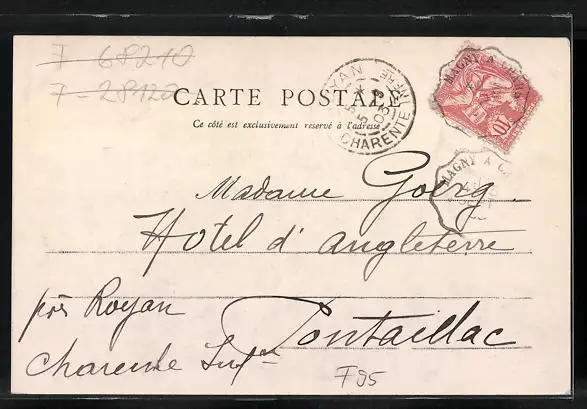 F 68210
7-28120
CARTE POSTALE
Ce côté est exclusivement réservé à l'adresse
ROYAN
5 * 5
03
CHARENTE INFRE
MAGNY A
10
MAGNY A C
Madame Goerg
Hotel d'Angleterre
près Royan Pontaillac
Charente Infre
F95